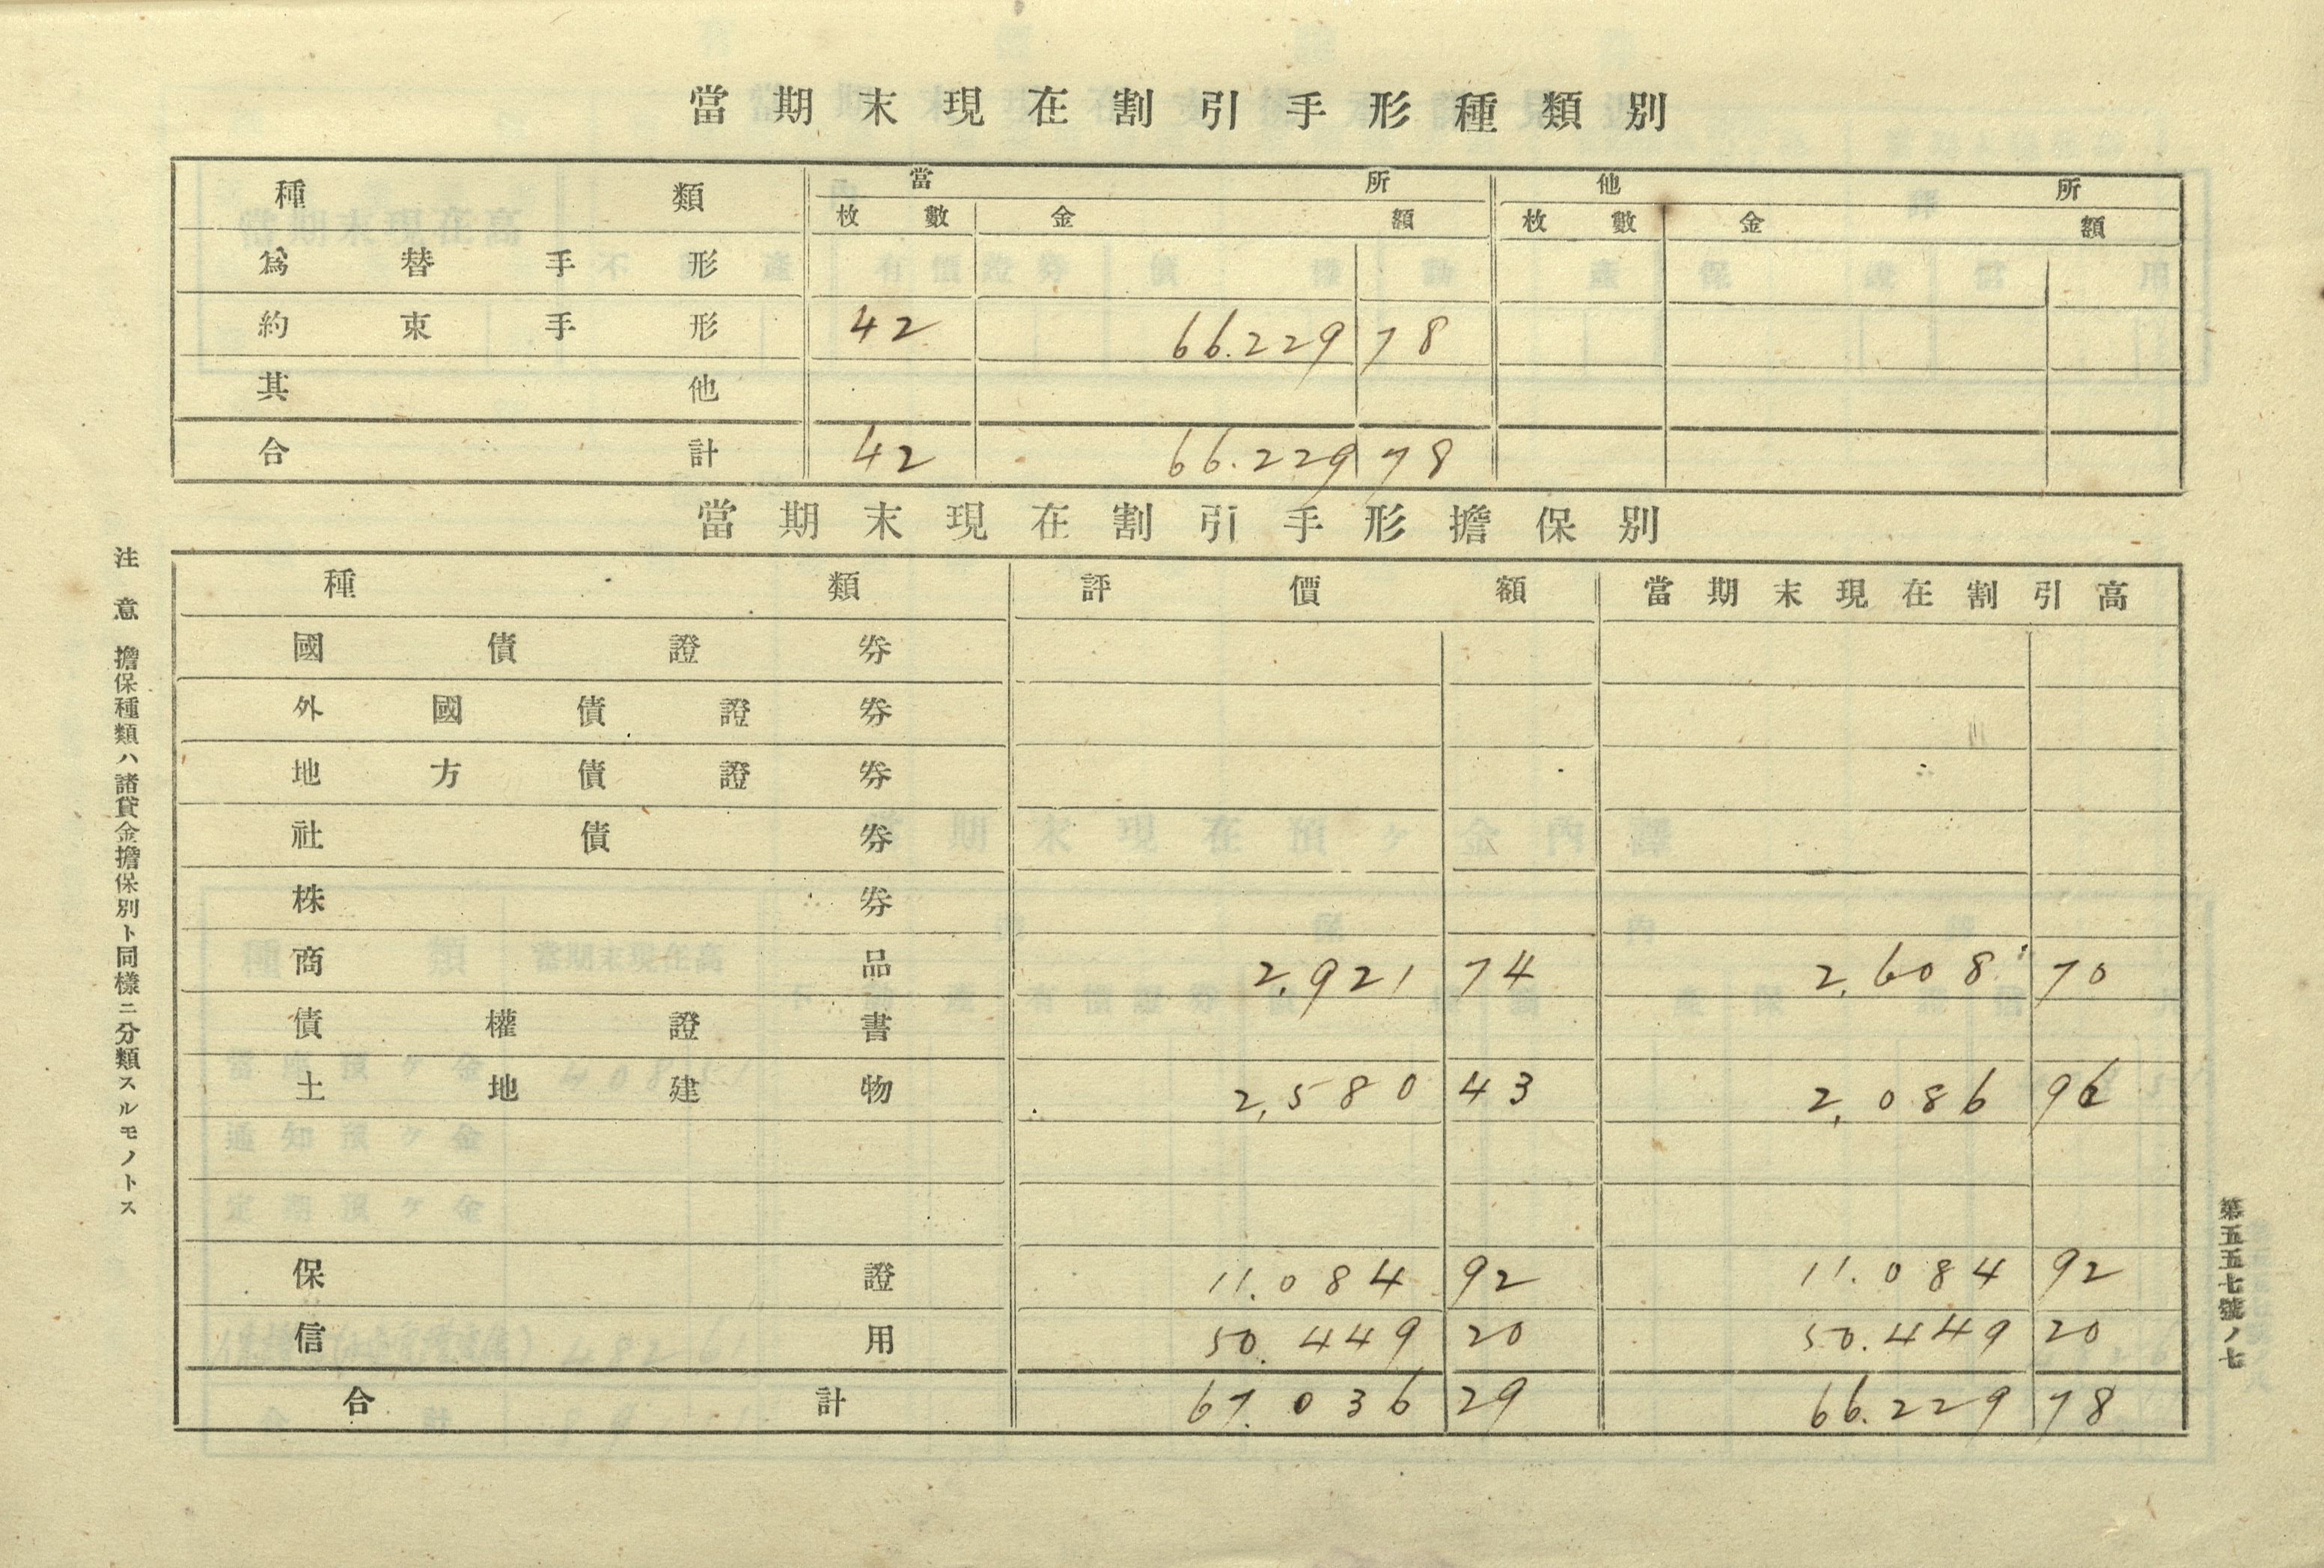 當期末現在割引手形種類別
種類 當所 他所
枚數 金額 枚數 金額
爲替手形
約束手形 42 66.229 78
其他
合計 42 66.229 78
當期末現在割引手形擔保別
種類 評價額 當期末現在割引高
國債證券
外國債證券
地方債證券
社債券
株券
商品 2,921 74 2,608 70
債權證書
土地建物 2,580 43 2,086 96
保證 11.084 92 11.084 92
信用 50.449 20 50.449 20
合計 67.036 29 66.229 78
注意 擔保種類ハ諸貸金擔保別ト同樣ニ分類スルモノトス
第五五七號ノ七